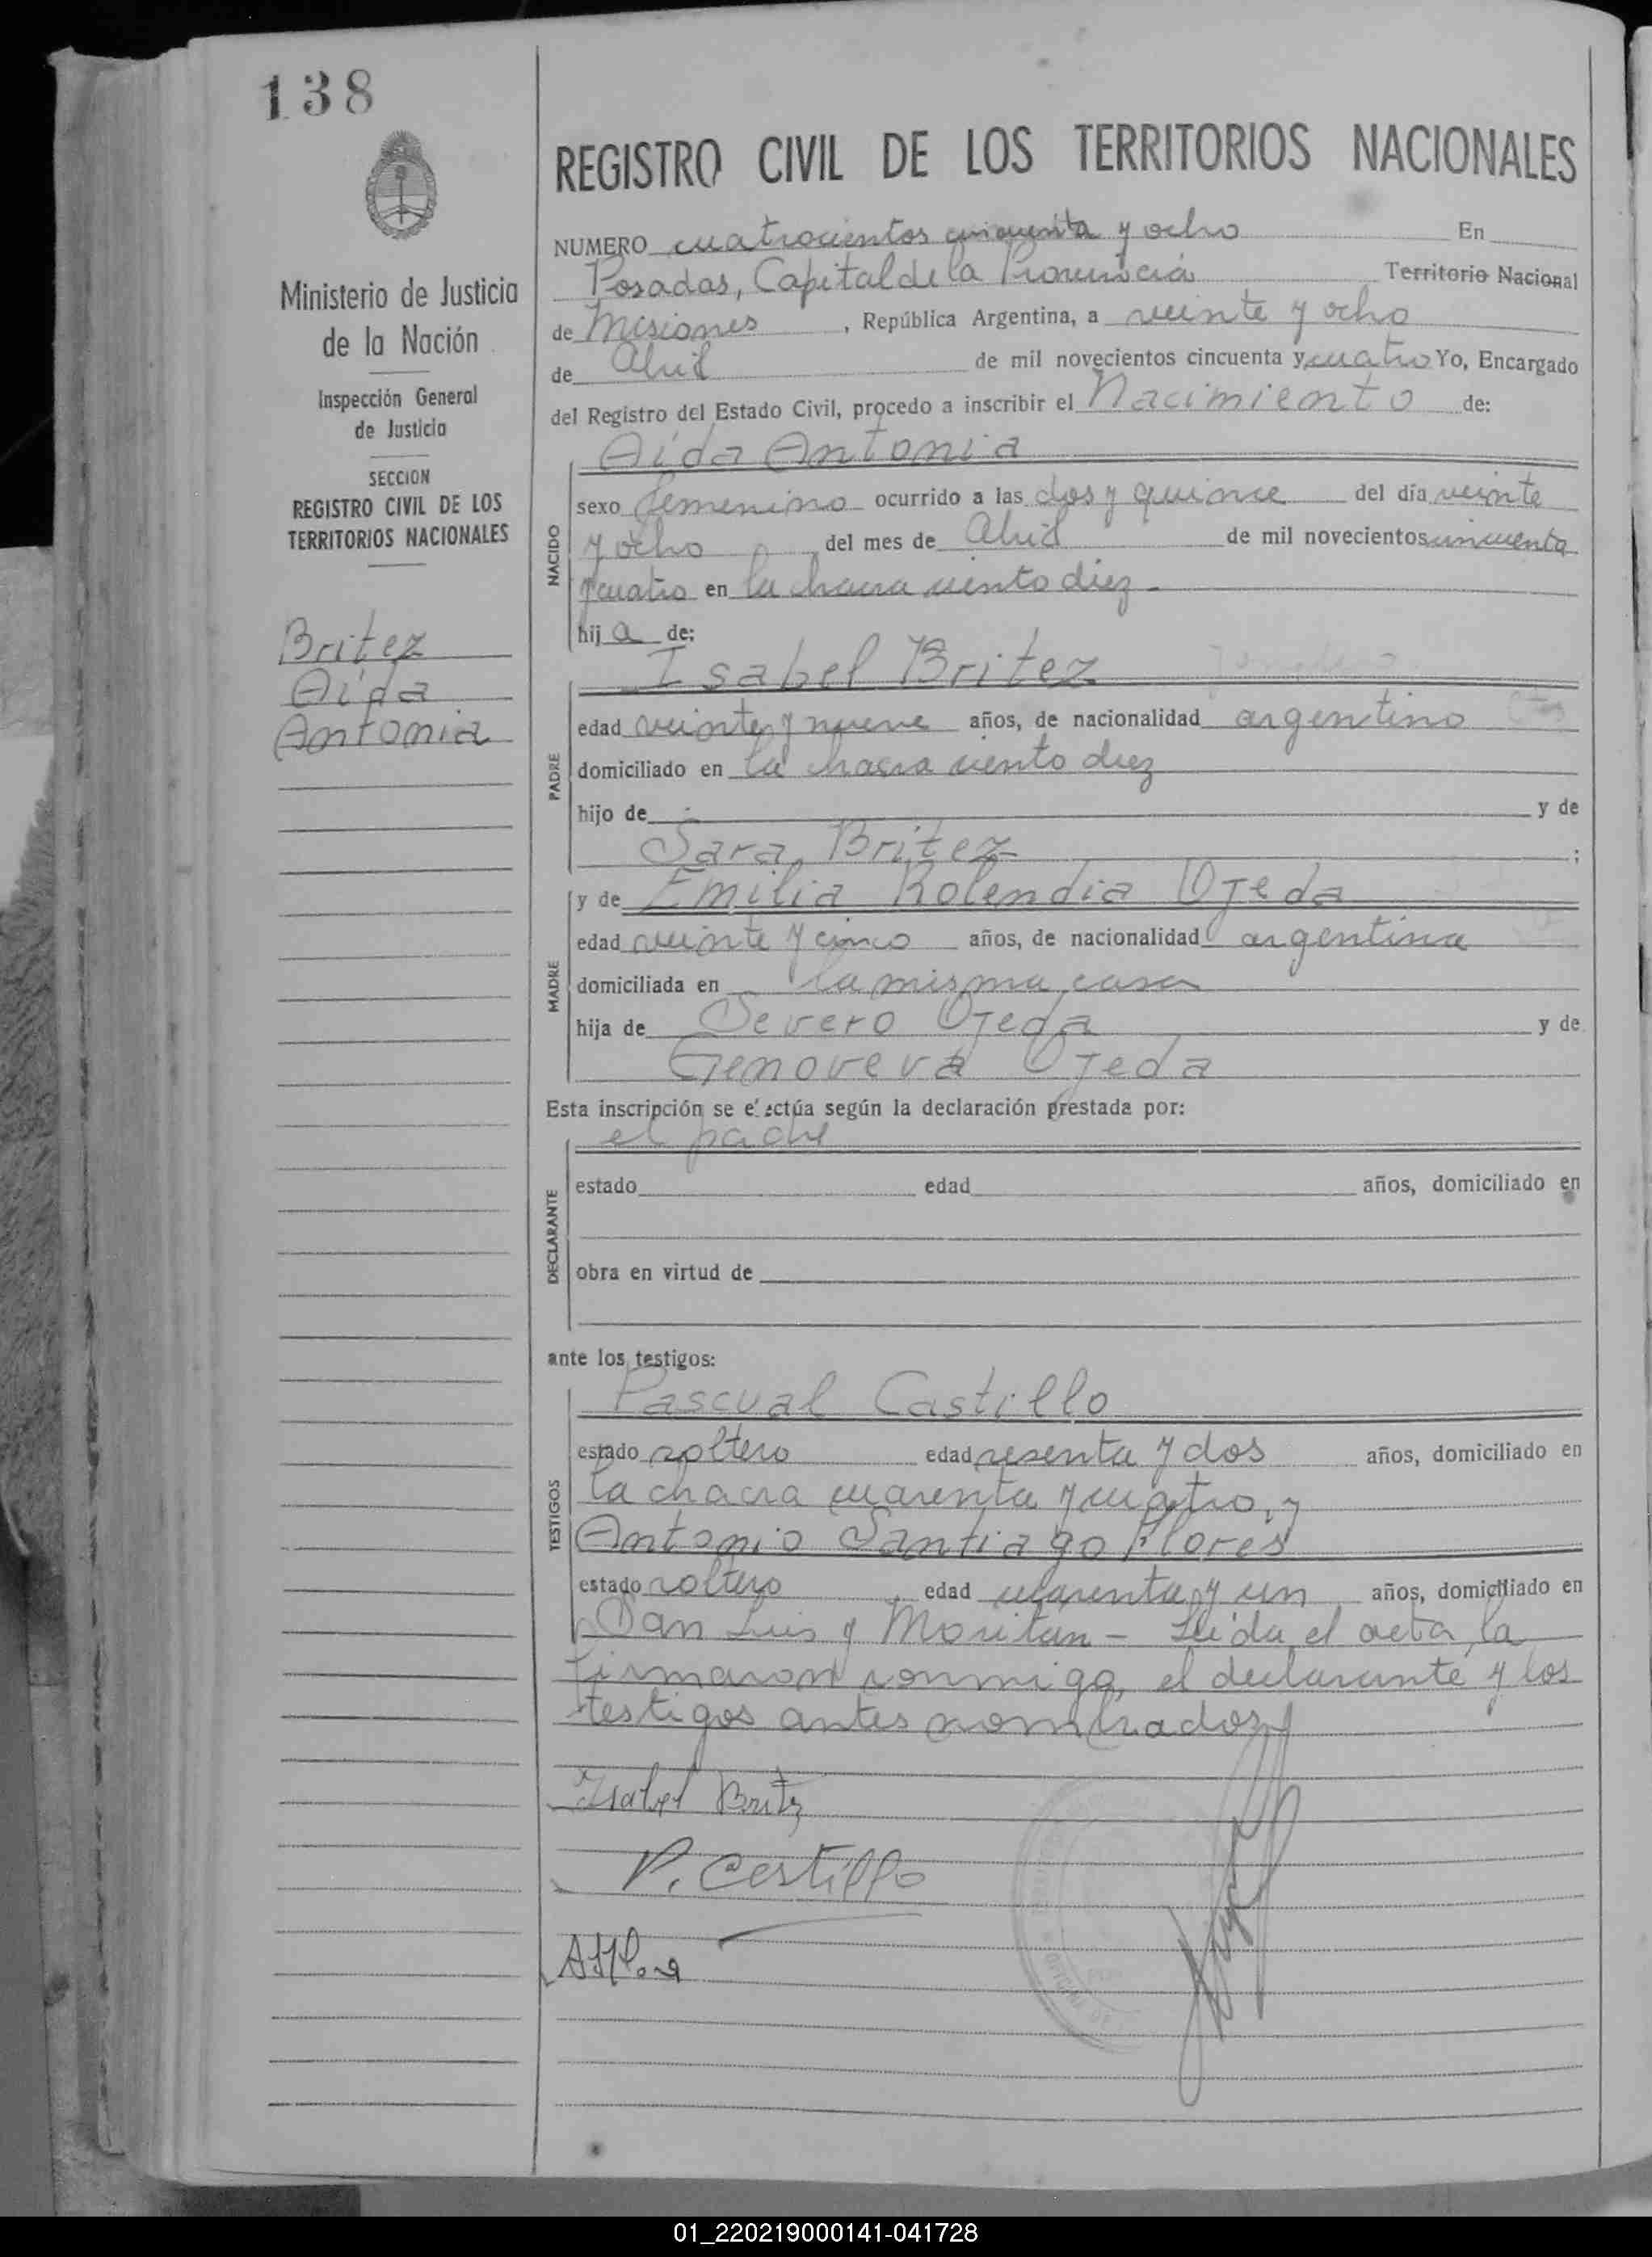 138
REGISTRO CIVIL DE LOS TERRITORIOS NACIONALES
Ministerio de Justicia
de la Nación
Inspección General
de Justicia
SECCION
REGISTRO CIVIL DE LOS
TERRITORIOS NACIONALES
Britez
Aída
Antonia
NUMERO cuatrocientos cincuenta y ocho En
Posadas, Capital de la Provincia Territorio Nacional
de Misiones, República Argentina, a veinte y ocho
de Abril de mil novecientos cincuenta y cuatro Yo, Encargado
del Registro del Estado Civil, procedo a inscribir el Nacimiento de:
Aída Antonia
NACIDO
sexo femenino ocurrido a las dos y quince del día veinte
y ocho del mes de Abril de mil novecientos cincuenta
y cuatro en la chacra ciento diez
hij a de:
Isabel Britez
PADRE
edad veinte y nueve años, de nacionalidad argentino
domiciliado en la chacra ciento diez
hijo de y de
Sara Britez ;
y de Emilia Rolendia Ojeda
MADRE
edad veinte y cinco años, de nacionalidad argentina
domiciliada en la misma casa
hija de Severo Ojeda y de
Genoveva Ojeda
Esta inscripción se efectúa según la declaración prestada por:
el padre
DECLARANTE
estado edad años, domiciliado en
obra en virtud de
ante los testigos:
Pascual Castillo
TESTIGOS
estado soltero edad sesenta y dos años, domiciliado en
la chacra cuarenta y cuatro, y
Antonio Santiago Flores
estado soltero edad cuarenta y un años, domiciliado en
San Luis y Moritán - Leida el acta, la
firmaron conmigo, el declarante y los
testigos antes nombrados
Isabel Britz
P. Castillo
01_220219000141-041728